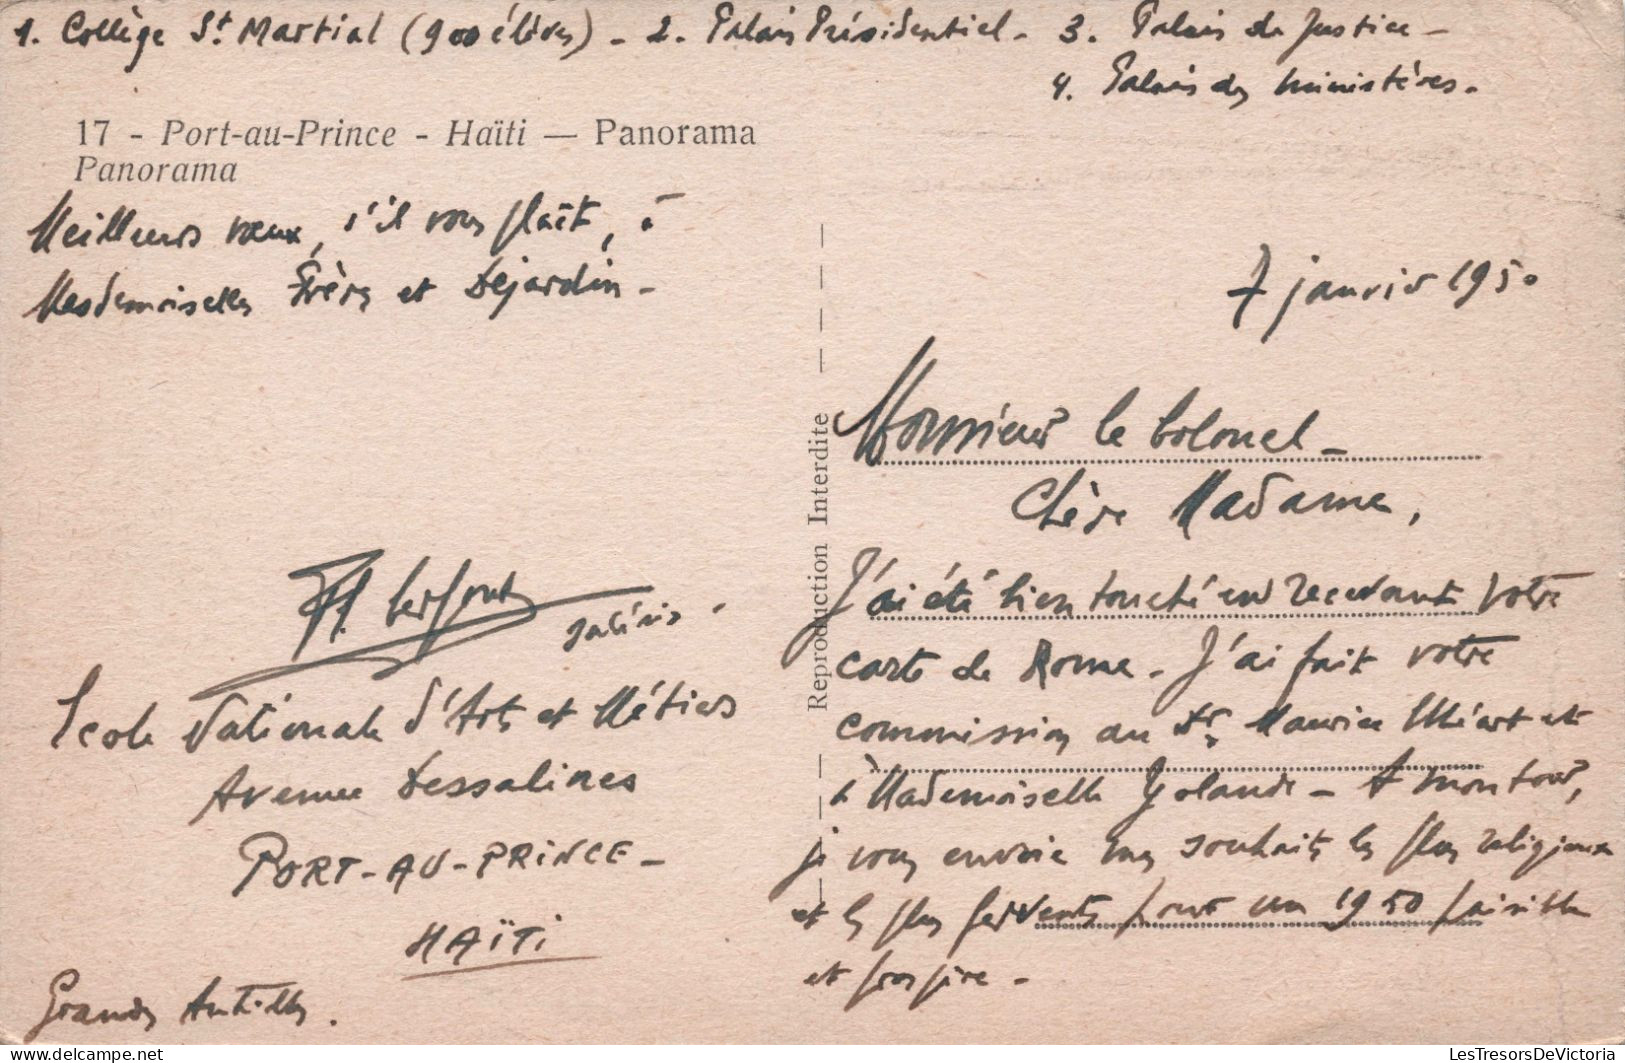 1. Collège St Martial (900 élèves) - 2. Palais Présidentiel - 3. Palais de Justice -
4. Palais des Ministères.
17 - Port-au-Prince - Haïti — Panorama
Panorama
Meilleurs vœux, s'il vous plaît, à
Mesdemoiselles Frère et Dejardin -
7 janvier 1950
Monsieur le Colonel -
Chère Madame,
J'ai été bien touché en recevant votre
carte de Rome. J'ai fait votre
commission au Fr. Maurice et
à Mademoiselle Yolande - A mon tour,
je vous envoie mes souhaits les plus religieux
et les plus fervents pour un 1950 paisible
et prospère -
Reproduction Interdite
Ecole Nationale d'Arts et Métiers
Avenue Dessalines
PORT-AU-PRINCE -
HAÏTI
Grandes Antilles.
LesTresorsDeVictoria
www.delcampe.net